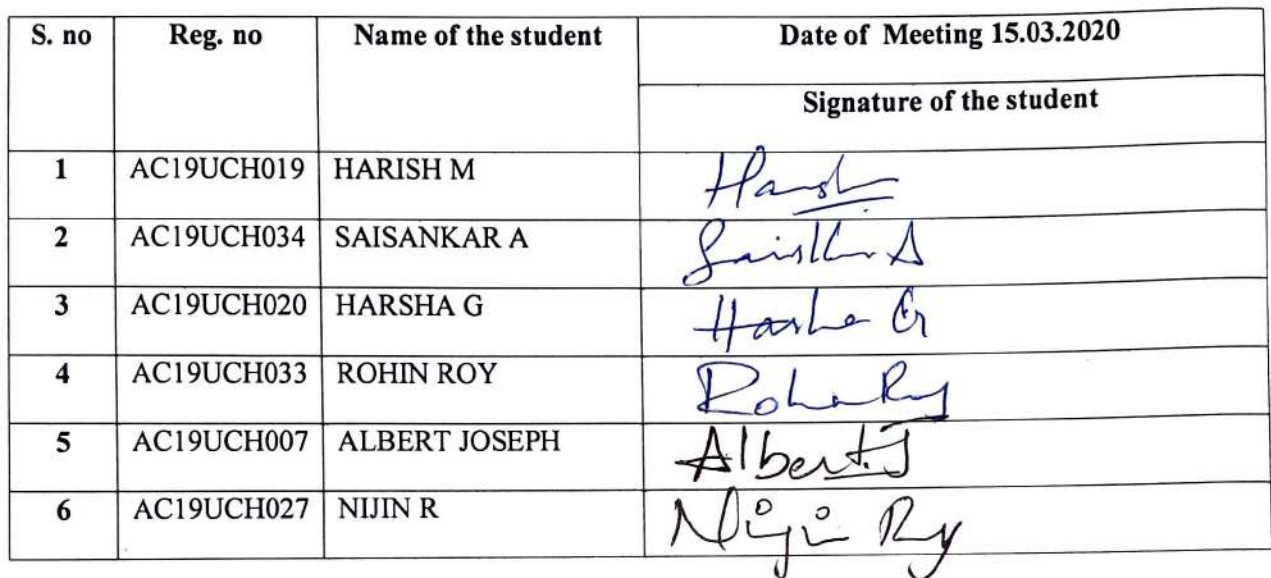 S. no Reg. no Name of the student Date of Meeting 15.03.2020
Signature of the student
1 AC19UCH019 HARISH M Harish
2 AC19UCH034 SAISANKAR A
3 AC19UCH020 HARSHA G Harsha G
4 AC19UCH033 ROHIN ROY Rohin Roy
5 AC19UCH007 ALBERT JOSEPH Albert.J
6 AC19UCH027 NIJIN R Nijin